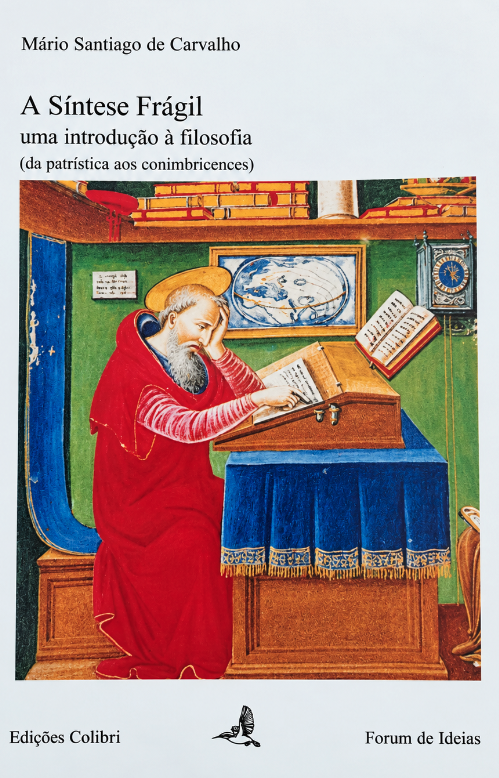 Mário Santiago de Carvalho
A Síntese Frágil
uma introdução à filosofia
(da patrística aos conimbricences)
Edições Colibri
Forum de Ideias